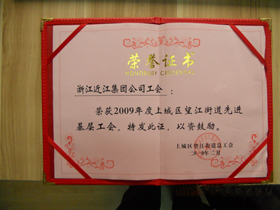 荣誉证书
HONORARY CREDENTIAL
浙江近江集团公司工会：
荣获2009年度上城区望江街道先进
基层工会。特发此证，以资鼓励。
上城区望江街道总工会
二〇一〇年二月